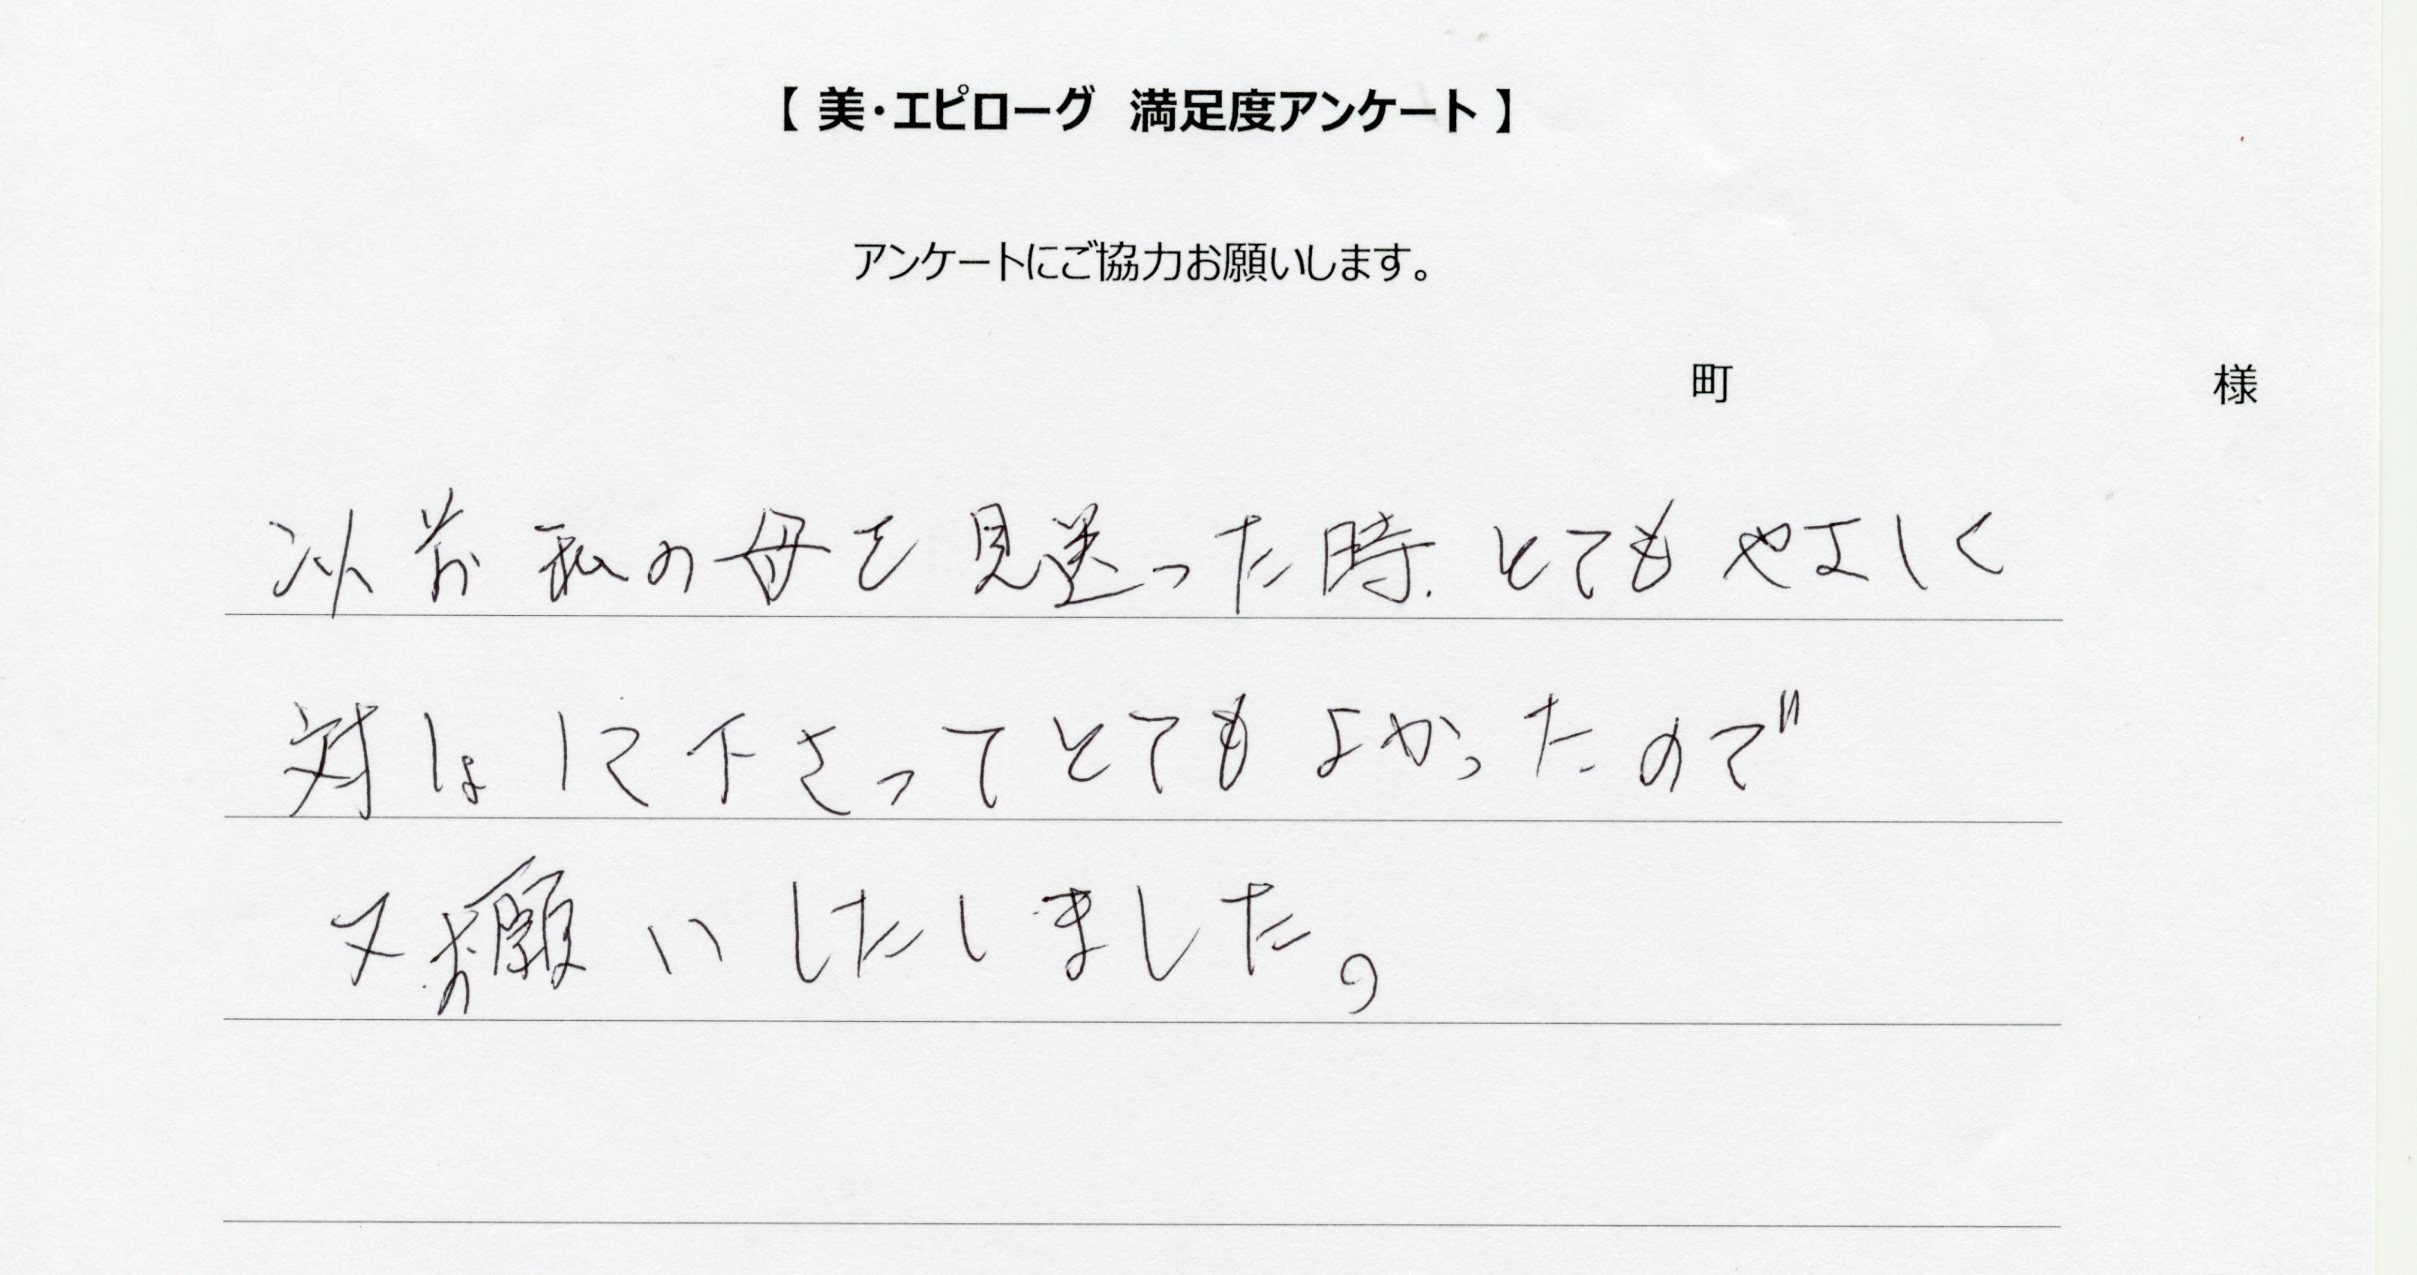 【 美・エピローグ 満足度アンケート 】
アンケートにご協力お願いします。
町 様
以前私の母を見送った時.とてもやさしく
対しょして下さってとてもよかったので
又お願いしたしました。